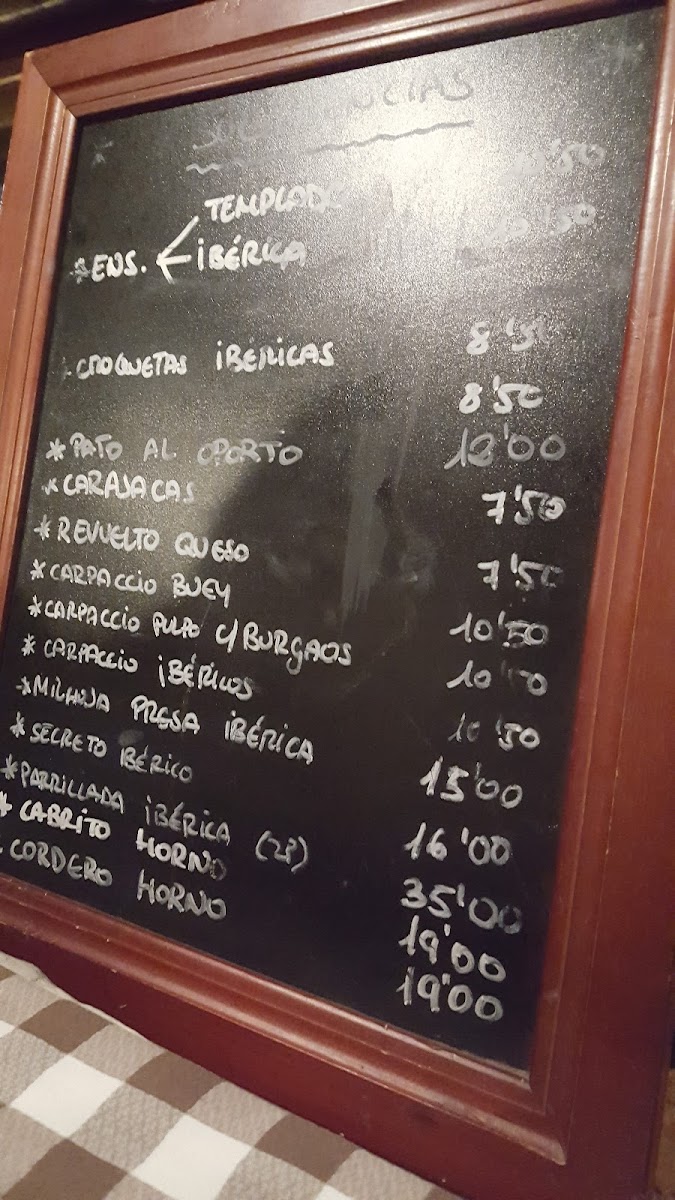 TEMPLADA
*ENS. IBÉRICA
CROQUETAS IBÉRICAS 8'50
*PATO AL OPORTO
*CARAJACAS 7'50
*REVUELTO QUESO 7'50
*CARPACCIO BUEY 10'50
*CARPACCIO PULPO C/BURGAOS
*CARPACCIO IBÉRICOS 10'50
*MILHOJA PRESA IBÉRICA 15'00
*SECRETO IBÉRICO 16'00
*PARRILLADA IBÉRICA (2P) 35'00
*CABRITO HORNO 19'00
CORDERO HORNO 19'00